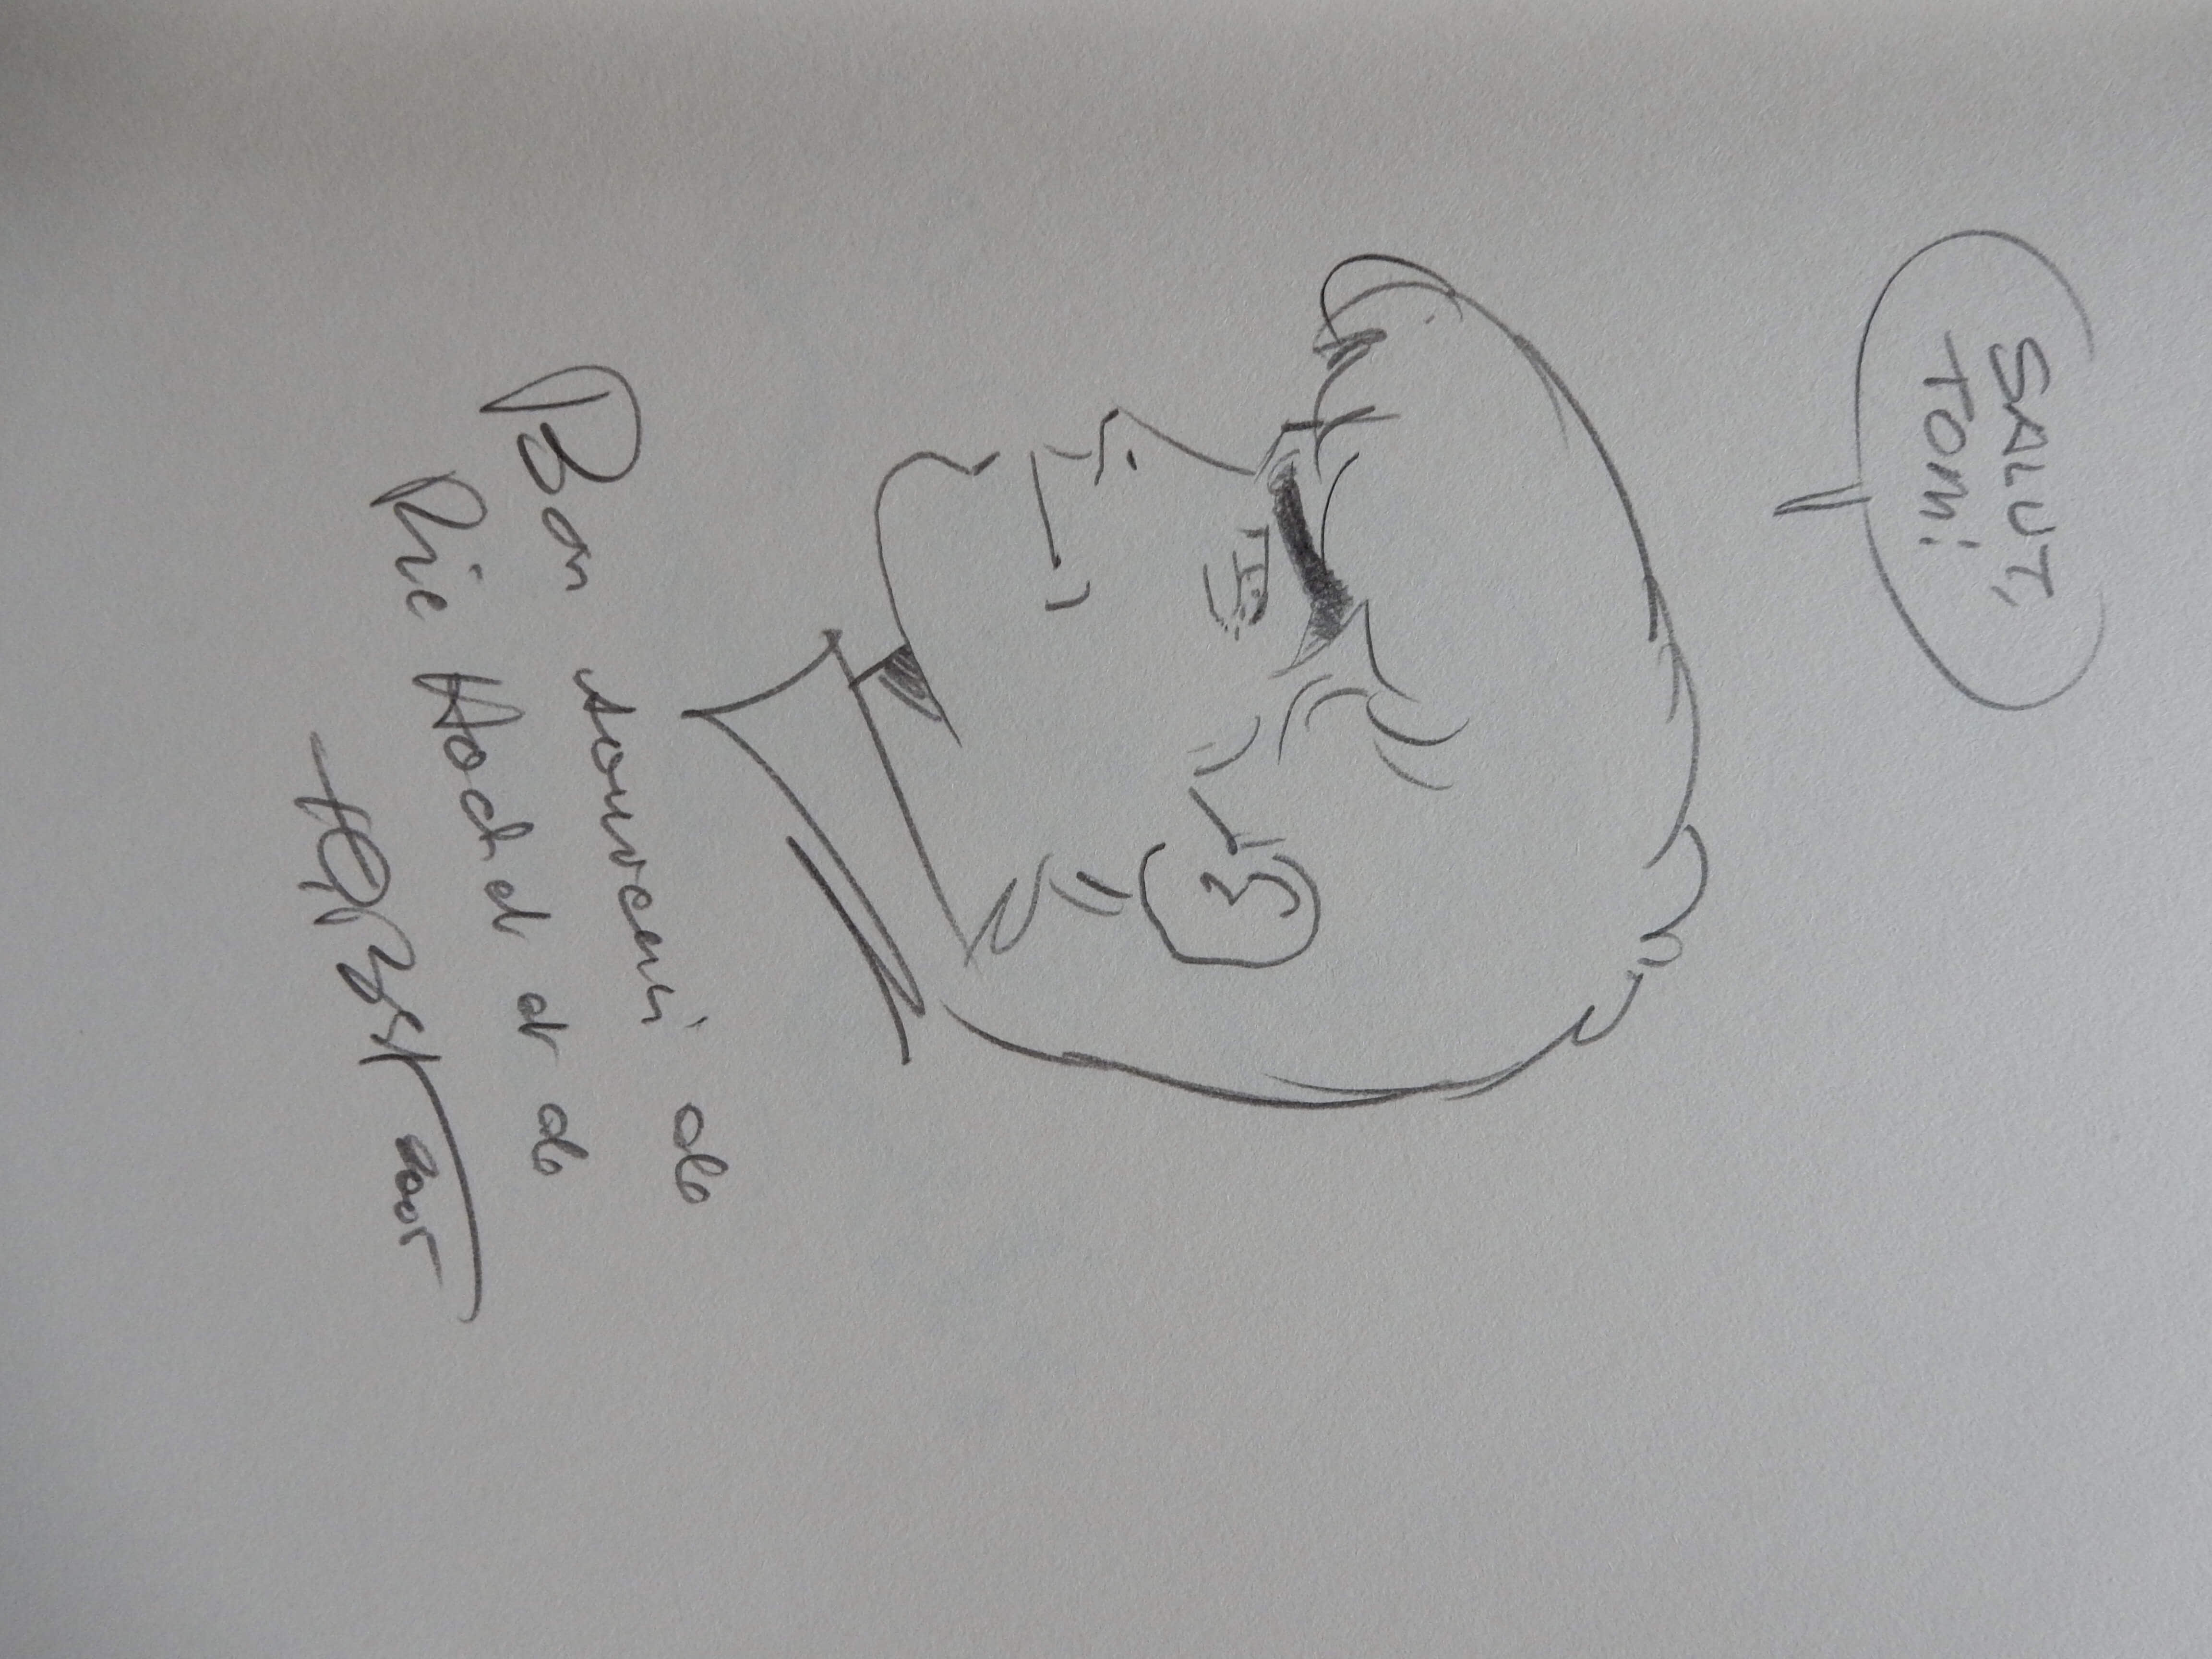 SALUT,
TOM!
Bon souvenir de
Ric Hochet et de
2005